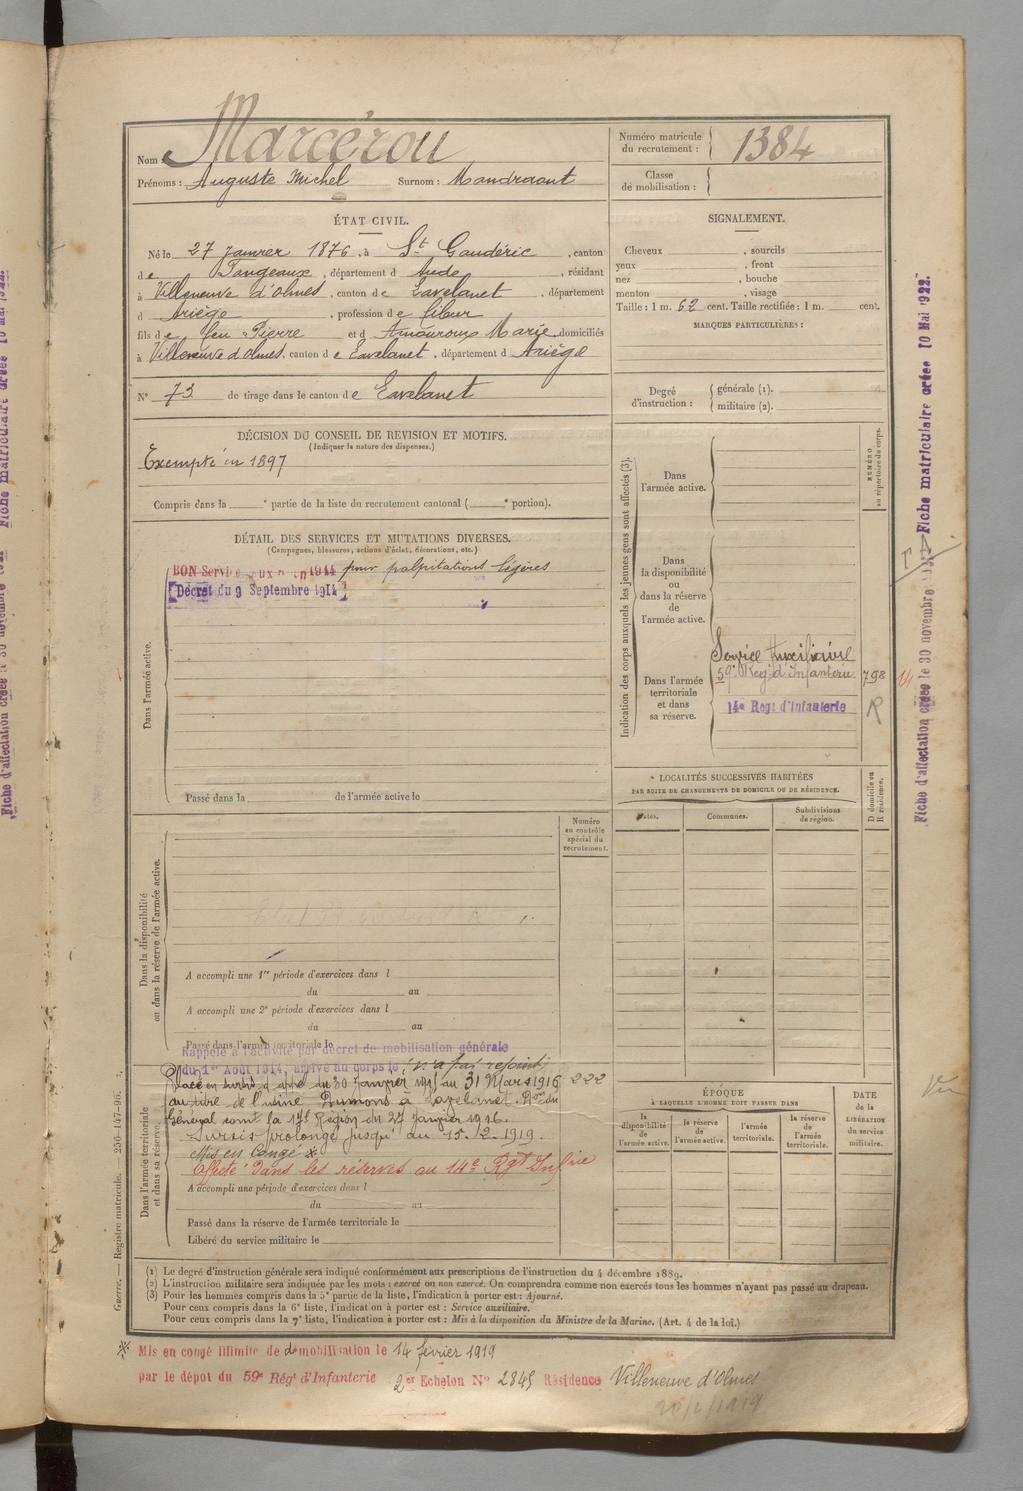 Nom : Marcérou
Prénoms : Auguste Michel Surnom : Mandraout
Numéro matricule du recrutement : 1384
Classe de mobilisation :
ÉTAT CIVIL.
Né le 27 Janvier 1876, à St Gaudéric, canton
de Fangeaux, département d Aude, résidant
à Villeneuve d'Olmes, canton de Lavelanet, département
d Ariège, profession de fileur
fils de feu Pierre et d Amouroux Marie domiciliés
à Villeneuve d'Olmes, canton de Lavelanet, département d Ariège
N° 73 de tirage dans le canton de Lavelanet
SIGNALEMENT.
Cheveux , sourcils
yeux , front
nez , bouche
menton , visage
Taille : 1 m. 62 cent. Taille rectifiée : 1 m. cent.
MARQUES PARTICULIÈRES :
Degré d'instruction : générale (1). militaire (2).
DÉCISION DU CONSEIL DE REVISION ET MOTIFS.
(Indiquer la nature des dispenses.)
Exempté en 1897
Compris dans la e partie de la liste du recrutement cantonal ( e portion).
DÉTAIL DES SERVICES ET MUTATIONS DIVERSES.
(Campagnes, blessures, actions d'éclat, décorations, etc.)
BON Service aux 1914 pour palpitations légères
Décret du 9 Septembre 1914
Dans l'armée active.
Passé dans la de l'armée active le
Indication des corps auxquels les jeunes gens sont affectés (3).
NUMÉRO au répertoire du corps.
Dans l'armée active.
Dans la disponibilité ou dans la réserve de l'armée active.
Dans l'armée territoriale et dans sa réserve.
Service Auxiliaire
59e Rég. d'Infanterie 798
14e Regt d'Infanterie R
LOCALITÉS SUCCESSIVES HABITÉES
PAR SUITE DE CHANGEMENTS DE DOMICILE OU DE RÉSIDENCE.
Dates. Communes. Subdivisions de région. D domicile ou R résidence.
Numéro au contrôle spécial du recrutement.
Dans la disponibilité ou dans la réserve de l'armée active.
A accompli une 1re période d'exercices dans l
du au
A accompli une 2e période d'exercices dans l
du au
Passé dans l'armée territoriale le
Rappelé à l'activité par décret de mobilisation générale
du 1er Août 1914, arrivé au corps le (n'a pas rejoint)
Dans l'armée territoriale et dans sa réserve.
Placé en sursis d'appel du 30 Janvier 1915 au 31 Mars 1916 222
au titre de l'usine Dumons à Lavelanet. Don du
Général comt la 17e Région du 27 janvier 1916.
Sursis prolongé jusqu'au 15.2.1919.
Mis en Congé *
Affecté dans les réserves au 14e Rgt Infrie
A accompli une période d'exercices dans l
du au
Passé dans la réserve de l'armée territoriale le
Libéré du service militaire le
ÉPOQUE
À LAQUELLE L'HOMME DOIT PASSER DANS
la disponibilité de l'armée active. la réserve de l'armée active. l'armée territoriale. la réserve de l'armée territoriale.
DATE de la LIBÉRATION du service militaire.
(1) Le degré d'instruction générale sera indiqué conformément aux prescriptions de l'instruction du 4 décembre 1889.
(2) L'instruction militaire sera indiquée par les mots : exercé ou non exercé. On comprendra comme non exercés tous les hommes n'ayant pas passé au drapeau.
(3) Pour les hommes compris dans la 5e partie de la liste, l'indication à porter est : Ajourné.
Pour ceux compris dans la 6e liste, l'indication à porter est : Service auxiliaire.
Pour ceux compris dans la 7e liste, l'indication à porter est : Mis à la disposition du Ministre de la Marine. (Art. 4 de la loi.)
* Mis en congé illimité de démobilisation le 14 février 1919
par le dépôt du 59e Régt d'Infanterie 2er Echelon N° 2845 Résidence Villeneuve d'Olmes
Guerre. — Registre matricule. — 256-147-96.
Fiche d'affectation créée le 30 novembre
Fiche matriculaire créée 10 Mai 1922.
14
Vu